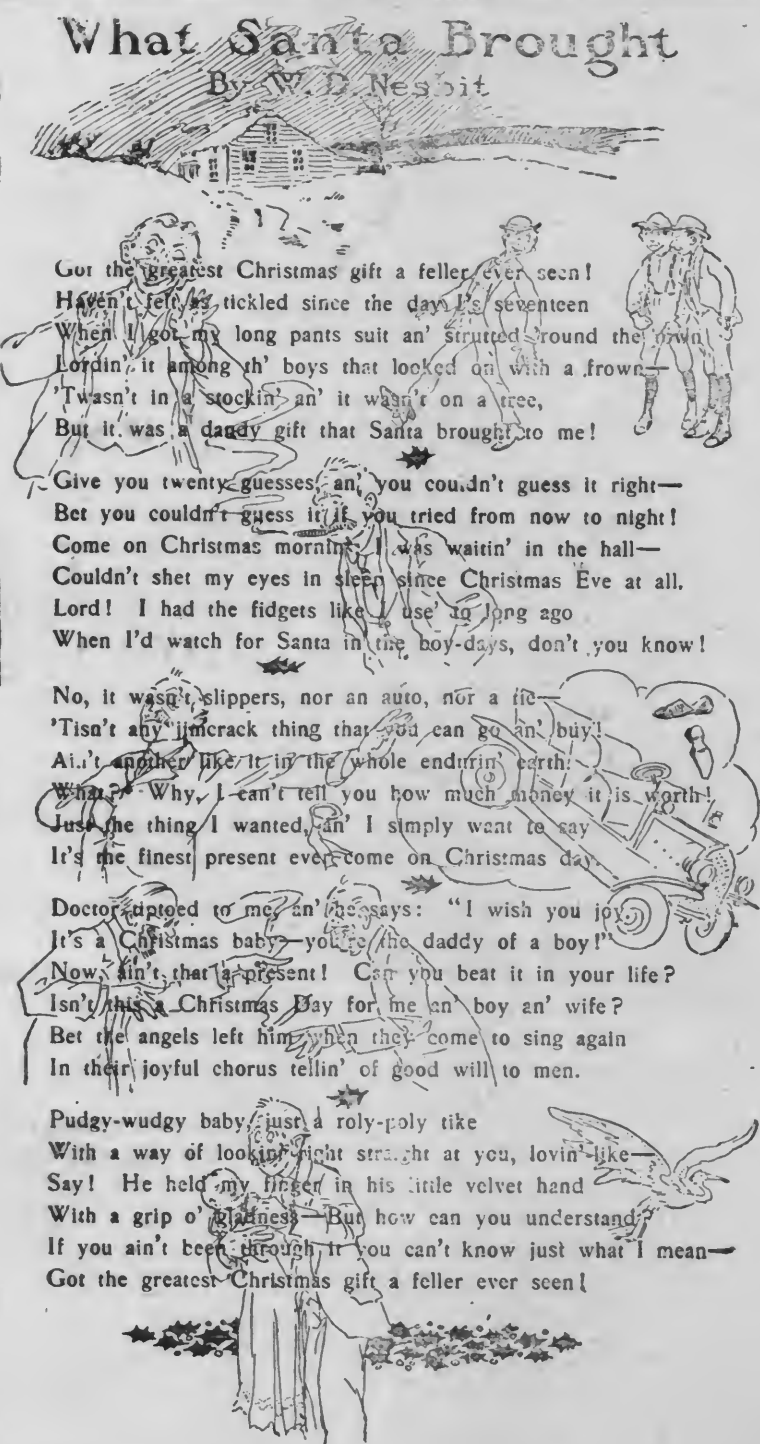 What Santa Brought
By W. D. Nesbit
Got the greatest Christmas gift a feller ever seen!
Haven't felt as tickled since the day I's seventeen
When I got my long pants suit an' strutted 'round the town
Lordin' it among th' boys that looked on with a frown—
'Twasn't in a stockin' an' it wasn't on a tree,
But it was a dandy gift that Santa brought to me!
Give you twenty guesses, an' you couldn't guess it right—
Bet you couldn't guess it if you tried from now to night!
Come on Christmas mornin'. I was waitin' in the hall—
Couldn't shet my eyes in sleep since Christmas Eve at all.
Lord! I had the fidgets like I use' to long ago
When I'd watch for Santa in the boy-days, don't you know!
No, it wasn't slippers, nor an auto, nor a tie—
'Tisn't any jimcrack thing that you can go an' buy!
Ain't another like it in the whole endurin' earth!
What? Why, I can't tell you how much money it is worth!
Just the thing I wanted, an' I simply want to say
It's the finest present ever come on Christmas day.
Doctor tiptoed to me, an' he says: "I wish you joy,
It's a Christmas baby—you're the daddy of a boy!"
Now, ain't that a present! Can you beat it in your life?
Isn't this a Christmas Day for me an' boy an' wife?
Bet the angels left him when they come to sing again
In their joyful chorus tellin' of good will to men.
Pudgy-wudgy baby, just a roly-poly tike
With a way of lookin' right straight at you, lovin'-like—
Say! He held my finger in his little velvet hand
With a grip o' gladness—But how can you understand?
If you ain't been through it you can't know just what I mean—
Got the greatest Christmas gift a feller ever seen!